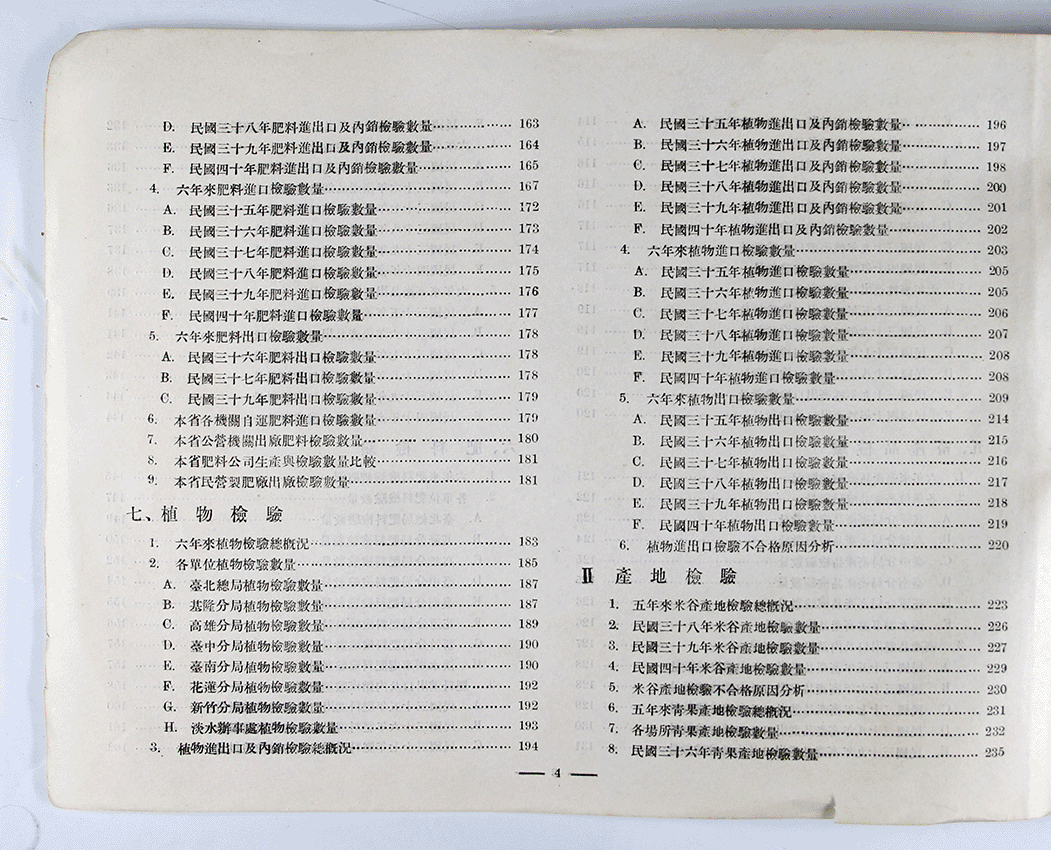 D. 民國三十八年肥料進出口及內銷檢驗數量 163
E. 民國三十九年肥料進出口及內銷檢驗數量 164
F. 民國四十年肥料進出口及內銷檢驗數量 165
4. 六年來肥料進口檢驗數量 167
A. 民國三十五年肥料進口檢驗數量 172
B. 民國三十六年肥料進口檢驗數量 173
C. 民國三十七年肥料進口檢驗數量 174
D. 民國三十八年肥料進口檢驗數量 175
E. 民國三十九年肥料進口檢驗數量 176
F. 民國四十年肥料進口檢驗數量 177
5. 六年來肥料出口檢驗數量 178
A. 民國三十六年肥料出口檢驗數量 178
B. 民國三十七年肥料出口檢驗數量 178
C. 民國三十九年肥料出口檢驗數量 179
6. 本省各機關自運肥料進口檢驗數量 179
7. 本省公營機關出廠肥料檢驗數量 180
8. 本省肥料公司生產與檢驗數量比較 181
9. 本省民營製肥廠出廠檢驗數量 181
七、植物檢驗
1. 六年來植物檢驗總概況 183
2. 各單位植物檢驗數量 185
A. 臺北總局植物檢驗數量 187
B. 基隆分局植物檢驗數量 187
C. 高雄分局植物檢驗數量 189
D. 臺中分局植物檢驗數量 190
E. 臺南分局植物檢驗數量 190
F. 花蓮分局植物檢驗數量 192
G. 新竹分局植物檢驗數量 192
H. 淡水辦事處植物檢驗數量 193
3. 植物進出口及內銷檢驗總概況 194
A. 民國三十五年植物進出口及內銷檢驗數量 196
B. 民國三十六年植物進出口及內銷檢驗數量 197
C. 民國三十七年植物進出口及內銷檢驗數量 198
D. 民國三十八年植物進出口及內銷檢驗數量 200
E. 民國三十九年植物進出口及內銷檢驗數量 201
F. 民國四十年植物進出口及內銷檢驗數量 202
4. 六年來植物進口檢驗數量 203
A. 民國三十五年植物進口檢驗數量 205
B. 民國三十六年植物進口檢驗數量 205
C. 民國三十七年植物進口檢驗數量 206
D. 民國三十八年植物進口檢驗數量 207
E. 民國三十九年植物進口檢驗數量 208
F. 民國四十年植物進口檢驗數量 208
5. 六年來植物出口檢驗數量 209
A. 民國三十五年植物出口檢驗數量 214
B. 民國三十六年植物出口檢驗數量 215
C. 民國三十七年植物出口檢驗數量 216
D. 民國三十八年植物出口檢驗數量 217
E. 民國三十九年植物出口檢驗數量 218
F. 民國四十年植物出口檢驗數量 219
6. 植物進出口檢驗不合格原因分析 220
Ⅱ 產地檢驗
1. 五年來米谷產地檢驗總概況 223
2. 民國三十八年米谷產地檢驗數量 226
3. 民國三十九年米谷產地檢驗數量 227
4. 民國四十年米谷產地檢驗數量 229
5. 米谷產地檢驗不合格原因分析 230
6. 五年來青果產地檢驗總概況 231
7. 各場所青果產地檢驗數量 232
8. 民國三十六年青果產地檢驗數量 235
— 4 —